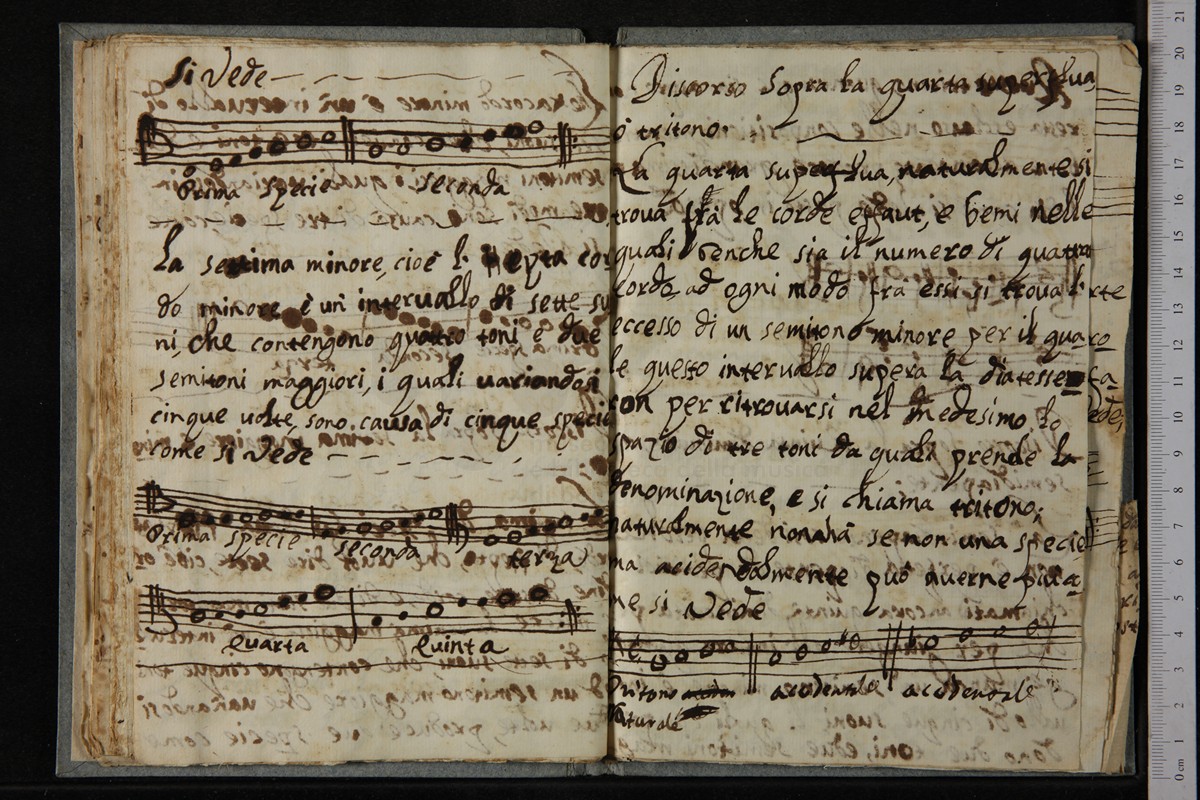 Si Vede
Prima specie seconda
La settima minore, cioè l'hepta cor
do minore è un intervallo di sette su
ni, che contengono quattro toni e due
semitoni maggiori, i quali variandosi
cinque volte, sono causa di cinque specie
come si vede
Prima specie seconda terza
Quarta Quinta
Discorso Sopra la quarta superflua,
ò tritono.
La quarta superflua, naturalmente si
trova frà le corde effaut, e bemi nelle
quali benche sia il numero di quattro
corde, ad ogni modo frà essi si trova
eccesso di un semitono minore per il qua
le questo intervallo supera la diatessa
ron per ritrovarsi nel medesimo lo
spazio di tre toni da quali prende la
denominazione, e si chiama tritono;
naturalmente non hà se non una specie
ma acidendalmente può averne più
ne, si Vede
Tritono accidentale accidentale
naturale
0 cm 1 2 3 4 5 6 7 8 9 10 11 12 13 14 15 16 17 18 19 20 21